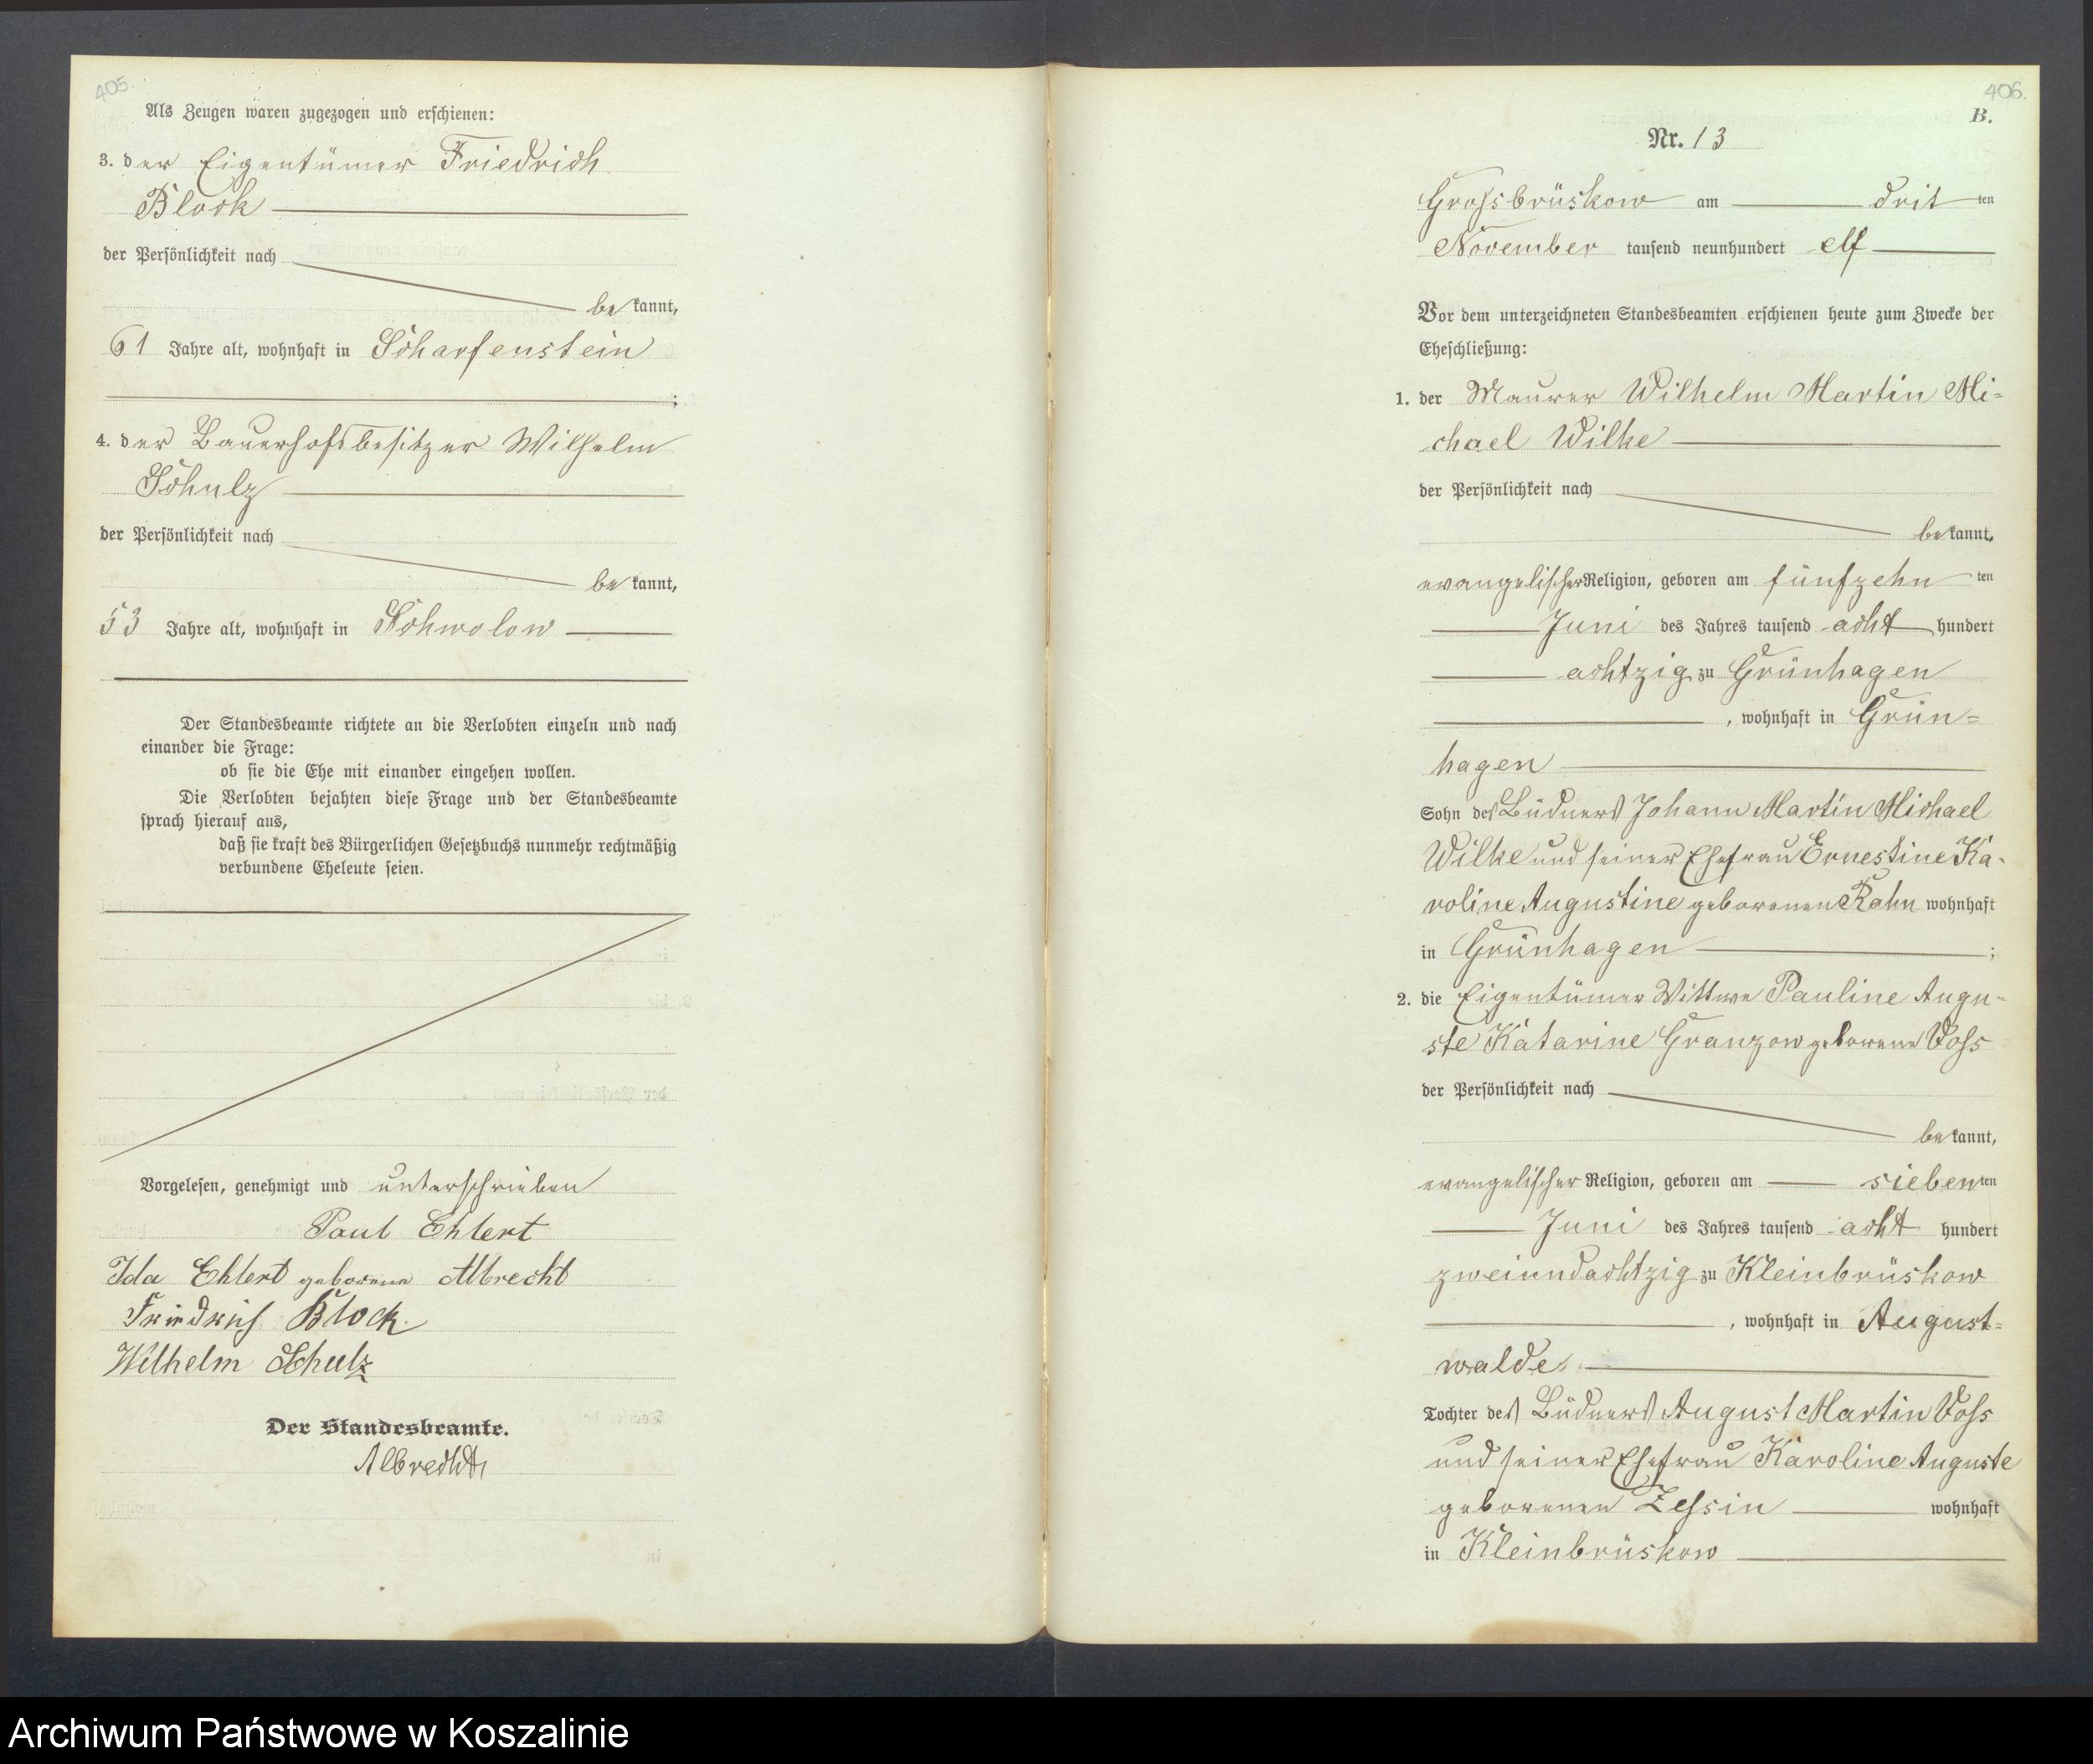 405.
Als Zeugen waren zugezogen und erschienen:
3. der Eigentümer Friedrich
Block
der Persönlichkeit nach
bekannt,
61 Jahre alt, wohnhaft in Scharfenstein
;
4. der Bauerhofsbesitzer Wilhelm
Schulz
der Persönlichkeit nach
bekannt,
53 Jahre alt, wohnhaft in Schwolow
Der Standesbeamte richtete an die Verlobten einzeln und nach
einander die Frage:
ob sie die Ehe mit einander eingehen wollen.
Die Verlobten bejahten diese Frage und der Standesbeamte
sprach hierauf aus,
daß sie kraft des Bürgerlichen Gesetzbuchs nunmehr rechtmäßig
verbundene Eheleute seien.
Vorgelesen, genehmigt und unterschrieben
Paul Ehlert
Ida Ehlert geborene Albrecht
Friedrich Block
Wilhelm Schulz
Der Standesbeamte.
Albrecht
406.
B.
Nr. 13
Grossbrüskow am dritten
November tausend neunhundert elf
Vor dem unterzeichneten Standesbeamten erschienen heute zum Zwecke der
Eheschließung:
1. der Maurer Wilhelm Martin Mi-
chael Wilke
der Persönlichkeit nach
bekannt,
evangelischer Religion, geboren am fünfzehnten
Juni des Jahres tausend achthundert
achtzig zu Grünhagen
, wohnhaft in Grün-
hagen
Sohn des Büdners Johann Martin Michael
Wilke und seiner Ehefrau Ernestine Ka-
roline Augustine geborenen Rahn wohnhaft
in Grünhagen ;
2. die Eigentümer Wittwe Pauline Augu-
ste Katarine Granzow geborene Voss
der Persönlichkeit nach
bekannt,
evangelischer Religion, geboren am siebenten
Juni des Jahres tausend acht hundert
zweiundachtzig zu Kleinbrüskow
, wohnhaft in August-
walde
Tochter des Büdners August Martin Voss
und seiner Ehefrau Karoline Auguste
geborenen Zessin wohnhaft
in Kleinbrüskow
Archiwum Państwowe w Koszalinie